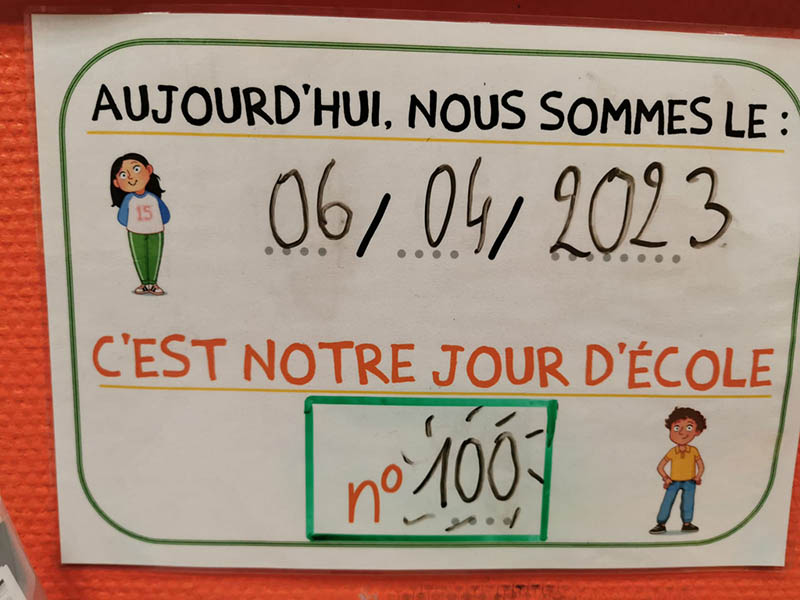 AUJOURD'HUI, NOUS SOMMES LE :
15
06/04/2023
C'EST NOTRE JOUR D'ÉCOLE
n° 100